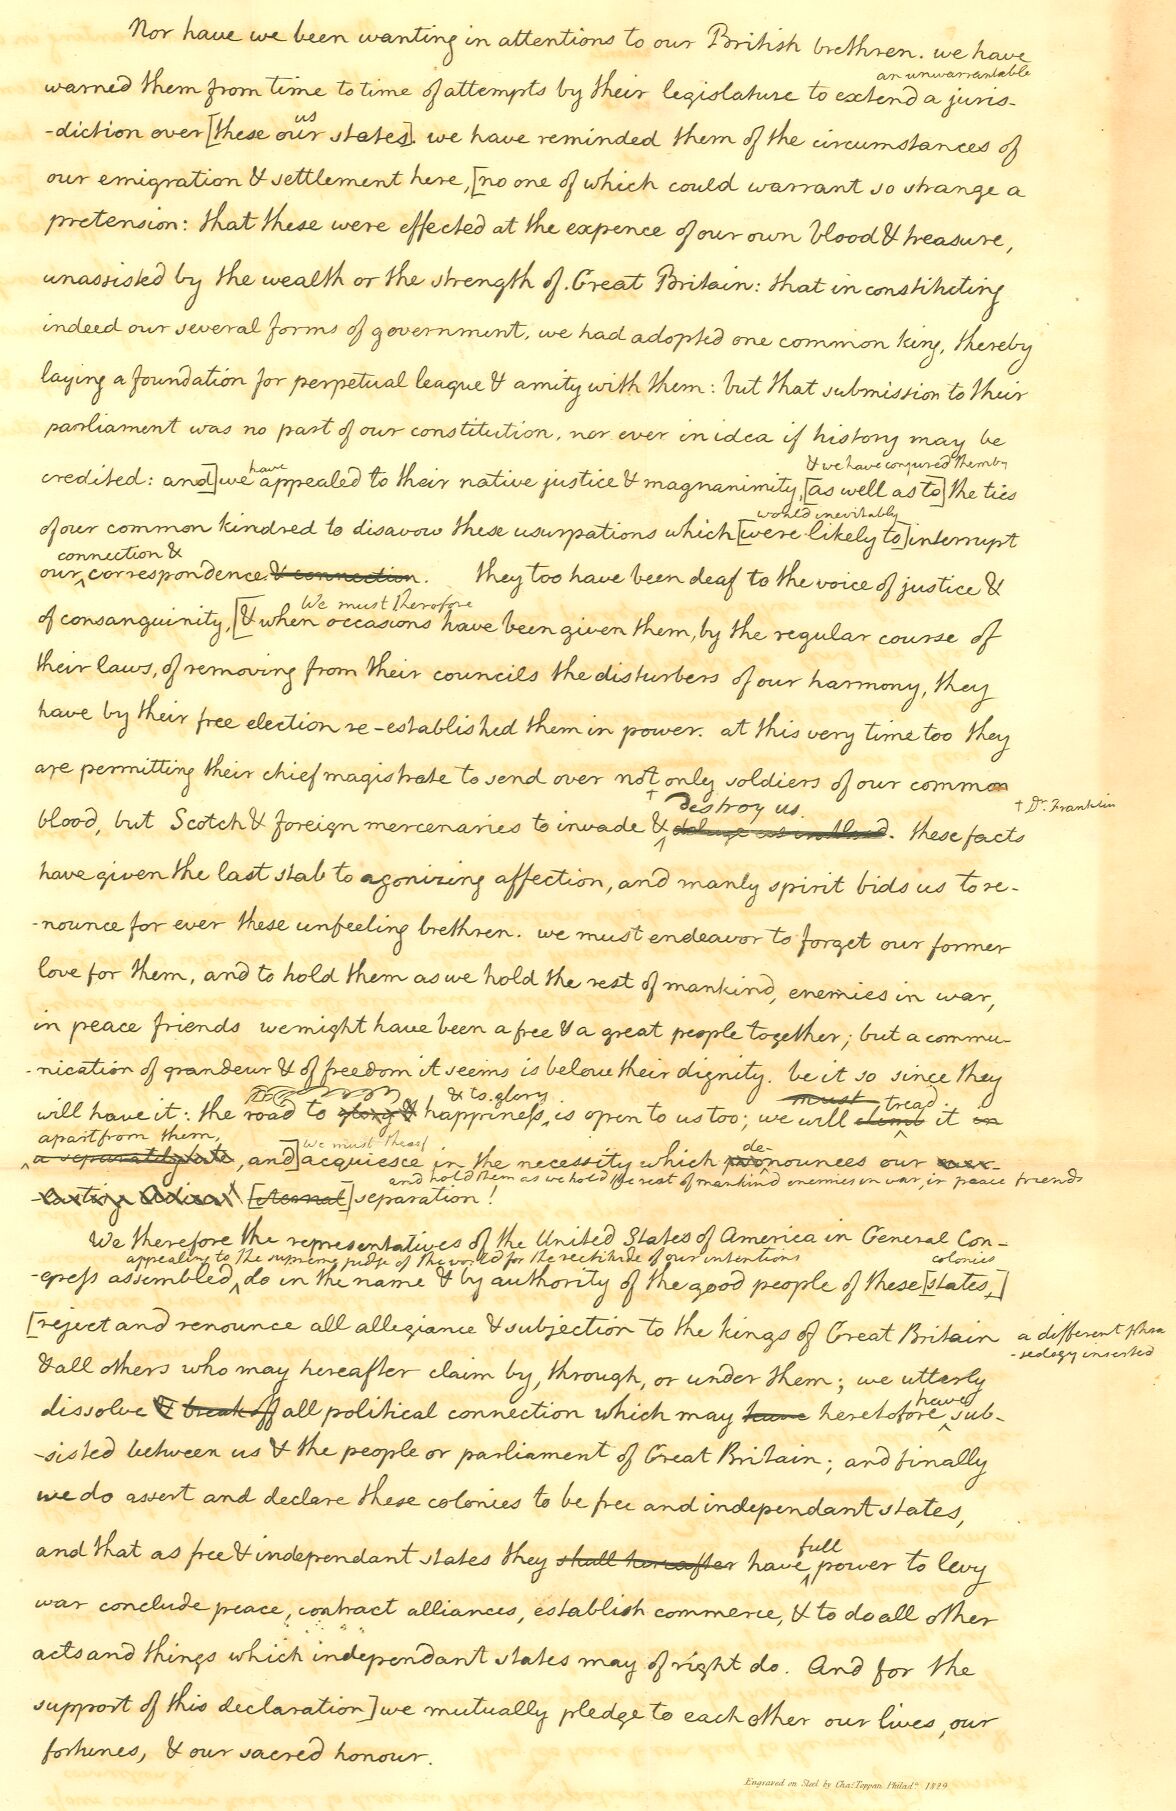 Nor have we been wanting in attentions to our British brethren. we have
an unwarrantable
warned them from time to time of attempts by their legislature to extend a juris-
us
-diction over [these our states]. we have reminded them of the circumstances of
our emigration & settlement here, [no one of which could warrant so strange a
pretension: that these were effected at the expence of our own blood & treasure,
unassisted by the wealth or the strength of Great Britain: that in constituting
indeed our several forms of government, we had adopted one common king, thereby
laying a foundation for perpetual league & amity with them: but that submission to their
parliament was no part of our constitution, nor ever in idea if history may be
have & we have conjured them by
credited: and] we appealed to their native justice & magnanimity, [as well as to] the ties
would inevitably
of our common kindred to disavow these usurpations which [were likely to] interrupt
connection &
our correspondence & connection. they too have been deaf to the voice of justice &
We must therefore
of consanguinity, [& when occasions have been given them, by the regular course of
their laws, of removing from their councils the disturbers of our harmony, they
have by their free election re-established them in power. at this very time too they
are permitting their chief magistrate to send over not only soldiers of our common
† destroy us. † Dr. Franklin
blood, but Scotch & foreign mercenaries to invade & deluge us in blood. these facts
have given the last stab to agonizing affection, and manly spirit bids us to re-
-nounce for ever these unfeeling brethren. we must endeavor to forget our former
love for them, and to hold them as we hold the rest of mankind, enemies in war,
in peace friends we might have been a free & a great people together; but a commu-
-nication of grandeur & of freedom it seems is below their dignity. be it so since they
& to glory must tread
will have it: the road to glory & happiness, is open to us too; we will climb it in
apart from them, We must theref de-
a separately state, and] acquiesce in the necessity which pronounces our ever-
and hold them as we hold the rest of mankind enemies in war, in peace friends
-lasting Adieu! [eternal] separation!
We therefore the representatives of the United States of America in General Con-
appealing to the supreme judge of the world for the rectitude of our intentions colonies
-gress assembled, do in the name & by authority of the good people of these [states,]
[reject and renounce all allegiance & subjection to the kings of Great Britain a different phra
-seology inserted
& all others who may hereafter claim by, through, or under them; we utterly
have
dissolve & break off all political connection which may have heretofore sub-
-sisted between us & the people or parliament of Great Britain; and finally
we do assert and declare these colonies to be free and independant states,
full
and that as free & independant states they shall hereafter have power to levy
war conclude peace, contract alliances, establish commerce, & to do all other
acts and things which independant states may of right do. And for the
support of this declaration] we mutually pledge to each other our lives, our
fortunes, & our sacred honour.
Engraved on Steel by Chas. Toppan Philada. 1829